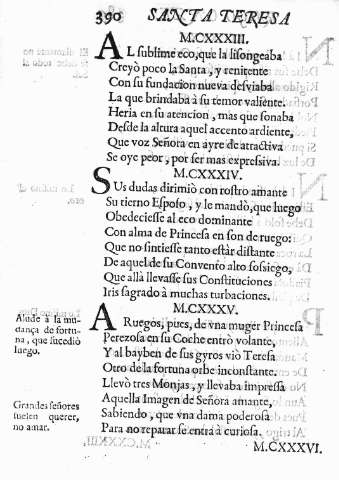 390 SANTA TERESA
M.CXXXIII.
AL sublime eco, que la lisongeaba
Creyò poco la Santa, y renitente
Con su fundacion nueva desviaba
La que brindaba à su temor valiente.
Heria en su atencion, mas que sonaba
Desde la altura aquel accento ardiente,
Que voz Señora en ayre de atractiva
Se oye peor, por ser mas expressiva.
M.CXXXIV.
SUs dudas dirimiò con rostro amante
Su tierno Esposo, y le mandò, que luego
Obedeciesse al eco dominante
Con alma de Princesa en son de ruego:
Que no sintiesse tanto estàr distante
De aquel de su Convento alto sosiego,
Que allà llevasse sus Constituciones
Iris sagrado à muchas turbaciones.
M.CXXXV.
Alude à la mudança de fortuna, que sucediò luego.
A Ruegos, pues, de vna muger Princesa
Perezosa en su Coche entrò volante,
Y al bayben de sus gyros viò Teresa
Otro de la fortuna orbe inconstante.
Llevò tres Monjas, y llevaba impressa
Grandes señores suelen querer, no amar.
Aquella Imagen de Señora amante,
Sabiendo, que vna dama poderosa
Para no reparar se entrà à curiosa.
M.CXXXVI.